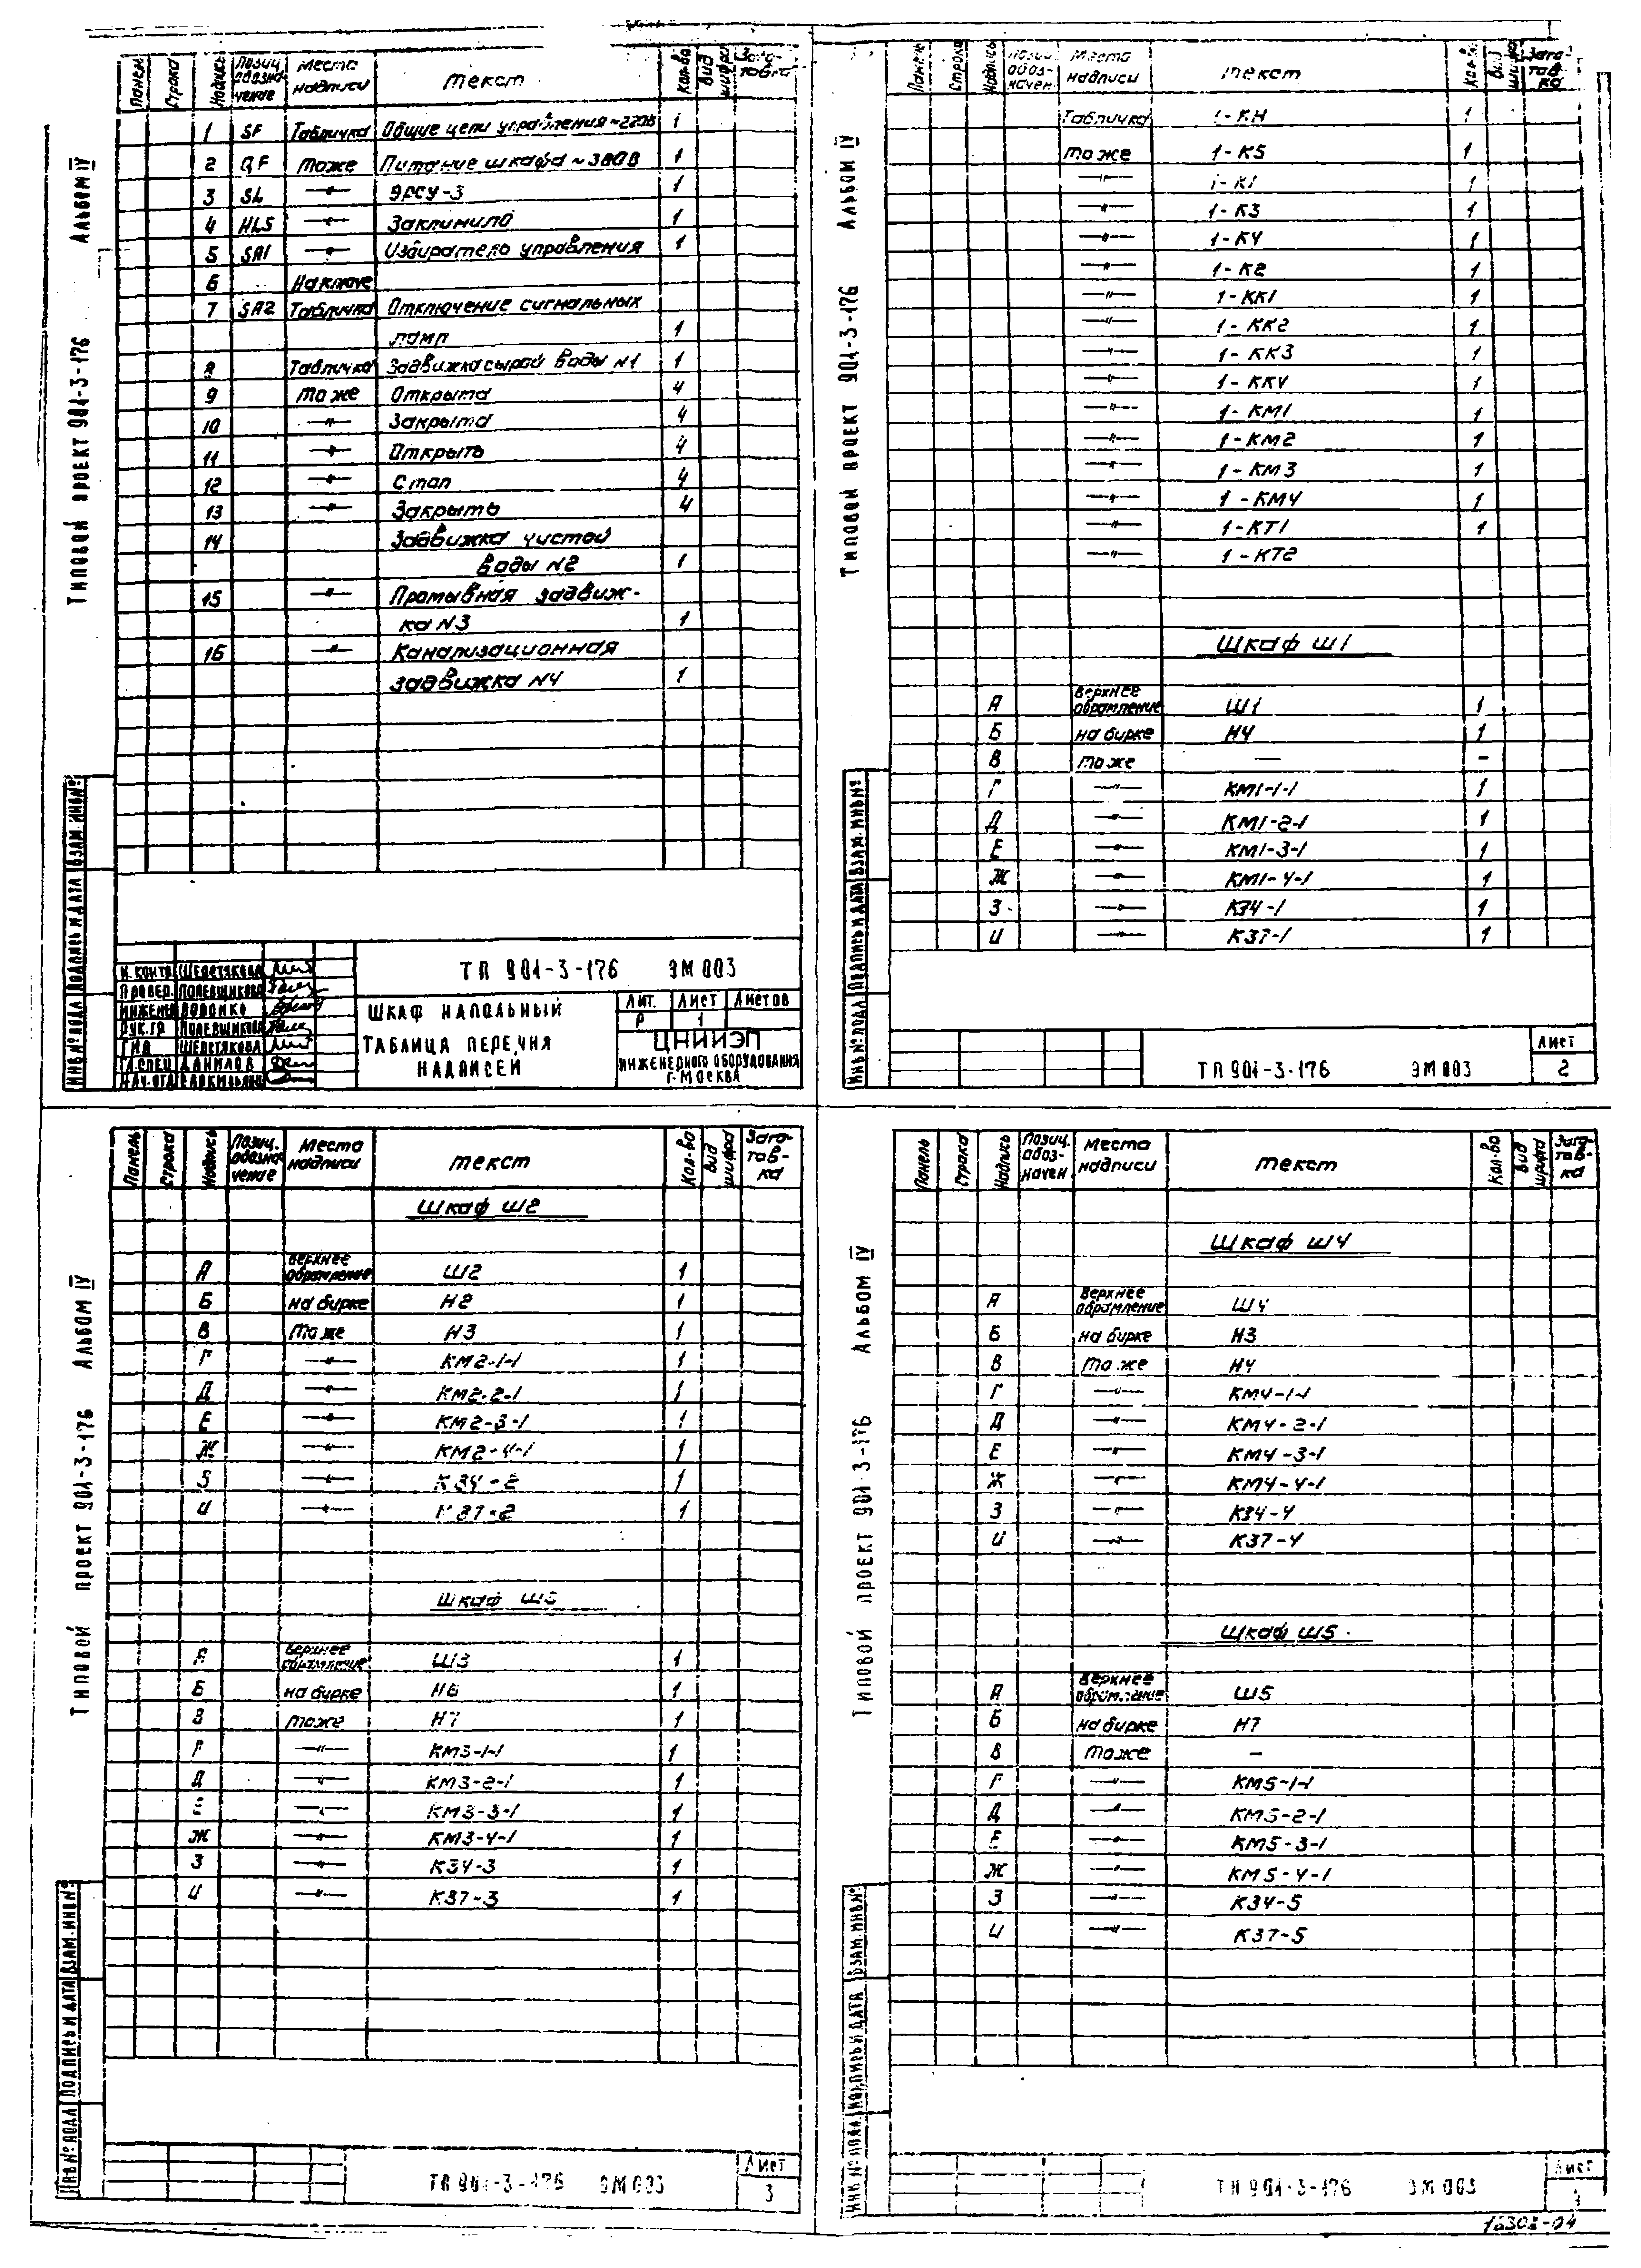 Типовой проект 901-3-176 Альбом IV
Панель Строка Надпись Позиц. обозначение Место надписи Текст Кол-во Вид шифра Заготовка
1 SF Табличка Общие цепи управления ~220В 1
2 QF То же Питание шкафа ~380В 1
3 SL —"— ЭРСУ-3 1
4 HL5 —"— Заклинило 1
5 SA1 —"— Избиратель управления 1
6 На ключе
7 SA2 Табличка Отключение сигнальных
ламп 1
8 Табличка Задвижка сырой воды N1 1
9 То же Открыта 4
10 —"— Закрыта 4
11 —"— Открыть 4
12 —"— Стоп 4
13 —"— Закрыть 4
14 Задвижка чистой
воды N2 1
15 —"— Промывная задвиж-
ка N3 1
16 —"— Канализационная
задвижка N4 1
Инв № подл Подпись и дата Взам. инв №
Н. контр Шерстякова
Провер. Полевщикова
Инжен
Рук. гр Полевщикова
ГИП Шерстякова
Гл. спец Данилов
Нач. отд
ТП 901-3-176 ЭМ 003
Шкаф напольный
Таблица перечня
надписей
Лит. Лист Листов
Р 1
ЦНИИЭП
инженерного оборудования
г. Москва
Типовой проект 901-3-176 Альбом IV
Панель Строка Надпись Позиц. обозначен. Место надписи Текст Кол-в. Вид шифра Заготовка
Табличка 1-КН 1
То же 1-К5 1
—"— 1-К1 1
—"— 1-К3 1
—"— 1-К4 1
—"— 1-К2 1
—"— 1-КК1 1
—"— 1-КК2 1
—"— 1-КК3 1
—"— 1-КК4 1
—"— 1-КМ1 1
—"— 1-КМ2 1
—"— 1-КМ3 1
—"— 1-КМ4 1
—"— 1-КТ1 1
—"— 1-КТ2
Шкаф Ш1
А Верхнее обрамление Ш1 1
Б на бирке Н4 1
В то же — –
Г —"— КМ1-1-1 1
Д —"— КМ1-2-1 1
Е —"— КМ1-3-1 1
Ж —"— КМ1-4-1 1
З —"— К34-1 1
И —"— К37-1 1
Инв № подл Подпись и дата Взам. инв №
ТП 901-3-176 ЭМ 003
Лист
2
Типовой проект 901-3-176 Альбом IV
Панель Строка Надпись Позиц. обозначение Место надписи Текст Кол-во Вид шифра Заготовка
Шкаф Ш2
А Верхнее обрамление Ш2 1
Б на бирке Н2 1
В то же Н3 1
Г —"— КМ2-1-1 1
Д —"— КМ2-2-1 1
Е —"— КМ2-3-1 1
Ж —"— КМ2-4-1 1
5 —"— К34-2 1
И —"— К37-2 1
Шкаф Ш3
А Верхнее обрамление Ш3 1
Б на бирке Н6 1
В то же Н7 1
Г —"— КМ3-1-1 1
Д —"— КМ3-2-1 1
Е —"— КМ3-3-1 1
Ж —"— КМ3-4-1 1
З —"— К34-3 1
И —"— К37-3 1
Инв № подл Подпись и дата Взам. инв №
ТП 901-3-176 ЭМ 003
Лист
3
Типовой проект 901-3-176 Альбом IV
Панель Строка Надпись Позиц. обозначен Место надписи Текст Кол-во Вид шифра Заготовка
Шкаф Ш4
А Верхнее обрамление Ш4
Б на бирке Н3
В то же Н4
Г —"— КМ4-1-1
Д —"— КМ4-2-1
Е —"— КМ4-3-1
Ж —"— КМ4-4-1
З —"— К34-4
И —"— К37-4
Шкаф Ш5
А Верхнее обрамление Ш5
Б на бирке Н7
В то же –
Г —"— КМ5-1-1
Д —"— КМ5-2-1
Е —"— КМ5-3-1
Ж —"— КМ5-4-1
З —"— К34-5
И —"— К37-5
Инв. № подл. Подпись и дата Взам. инв №
ТП 901-3-176 ЭМ 003
Лист